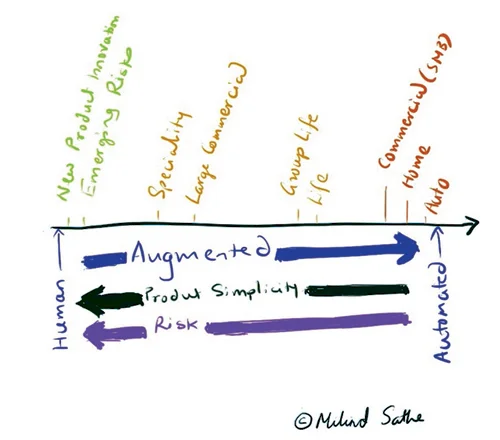 New Product Innovation
Emerging Risk
Speciality
Large Commercial
Group Life
Life
Commercial (SMB)
Home
Auto
Human
Augmented
Automated
Product Simplicity
Risk
© Milind Sathe